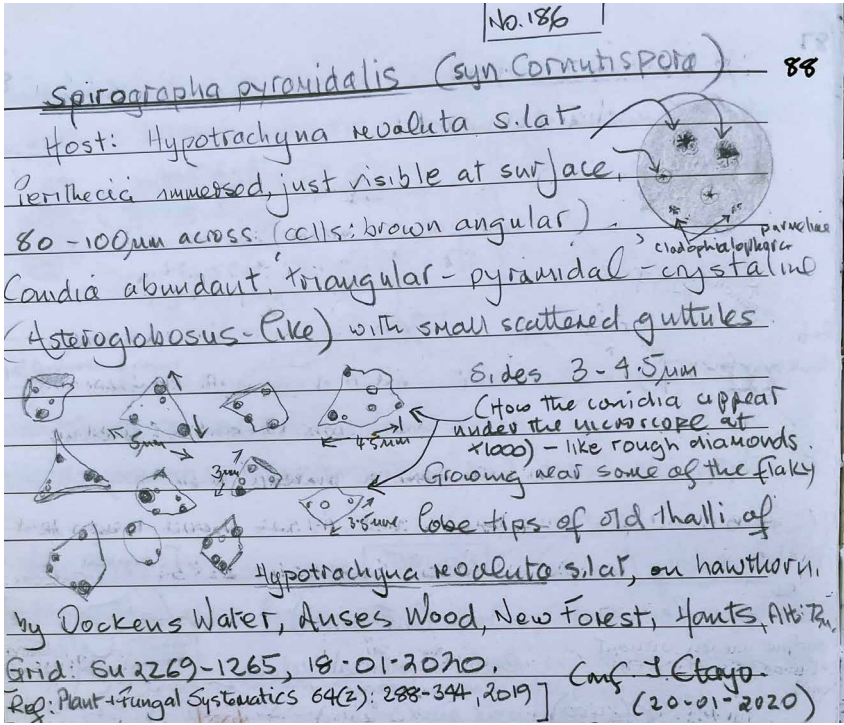 No. 186
Spirographa pyramidalis (syn. Cornutispora)
88
Host: Hypotrachyna revoluta s.lat
Perithecia immersed, just visible at surface,
80-100µm across (cells: brown angular).
parmeliae
cladophialophora
Conidia abundant, triangular - pyramidal - crystalline
(Asteroglobosus-like) with small scattered guttules
Sides 3-4.5µm
(How the conidia appear
under the microscope at
x1000) - like rough diamonds.
5µm
4.5µm
3µm
3.5µm
Growing near some of the flaky
lobe tips of old thalli of
Hypotrachyna revoluta s.lat, on hawthorn.
by Dockens Water, Anses Wood, New Forest, Hants,
Grid: SU 2269-1265, 18-01-2020.
Conf. J. Etayo.
(20-01-2020)
Plant + Fungal Systematics 64(2): 288-344, 2019]